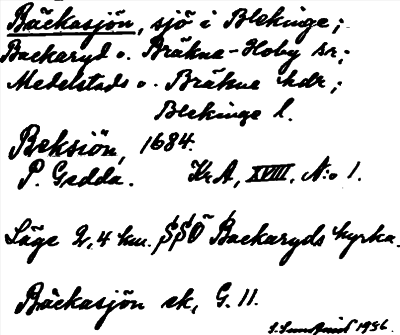 Bäckasjön, sjö i Blekinge;
Backaryd o. Bräkne-Hoby snr;
Medelstads o. Bräkne hdr;
Blekinge l.
Beksiön, 1684.
P. Gedda. KrA, XVIII, N:o 1.
Läge 2,4 km. SSO Backaryds kyrka.
Bäckasjön ek, G. 11.
1956.